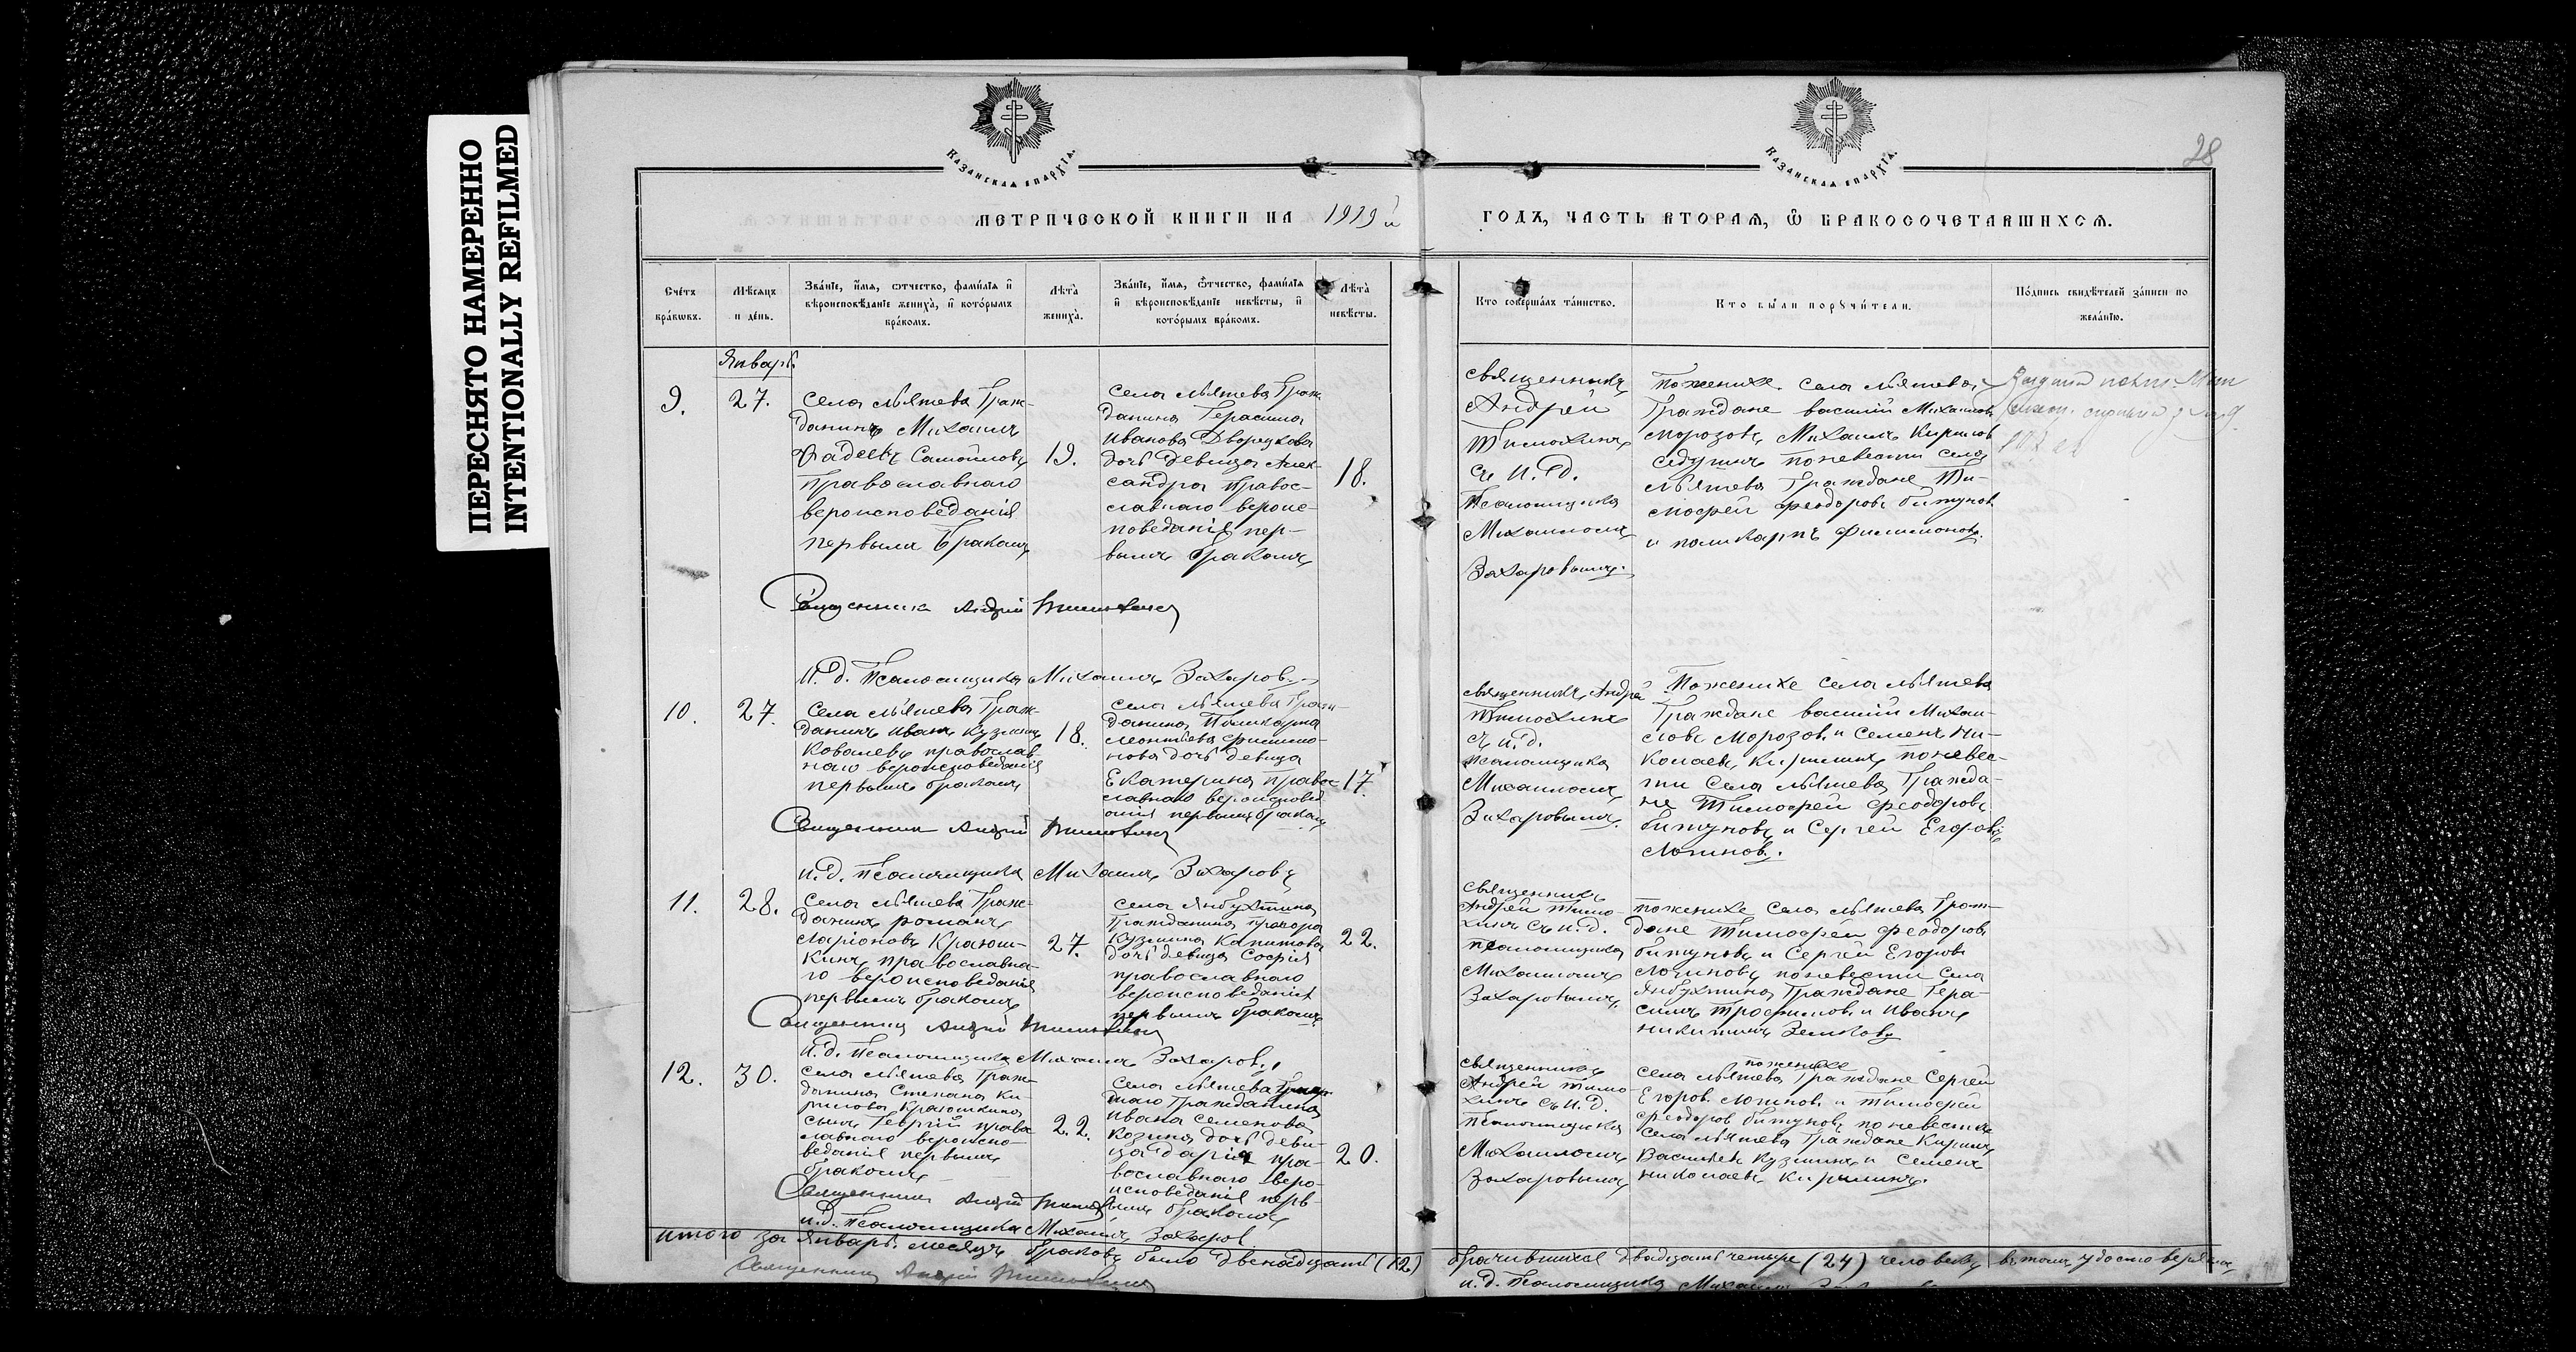 ПЕРЕСНЯТО НАМЕРЕННО
INTENTIONALLY REFILMED
КАЗАНСКАЯ ЕПАРХІЯ.
КАЗАНСКАЯ ЕПАРХІЯ.
28
МЕТРИЧЕСКОЙ КНИГИ НА 1919й ГОДЪ, ЧАСТЬ ВТОРАЯ, Ѡ БРАКОСОЧЕТАВШИХСЯ.
Счетъ
браковъ.
Мѣсяцъ
и день.
Званіе, имя, отчество, фамилія и
вѣроисповѣданіе жениха, и которымъ
бракомъ.
Лѣта
жениха.
Званіе, имя, отчество, фамилія
и вѣроисповѣданіе невѣсты, и
которымъ бракомъ.
Лѣта
невѣсты.
Кто совершалъ таинство.
Кто были поручители.
Подпись свидѣтелей записи по
желанію.
Январь
9.
27.
Села Льяшева Граж-
данинъ Михаилъ
Фадеевъ Самойловъ
Православнаго
вероисповеданія
первымъ бракомъ
19.
Села Льяшева Граж-
данина Герасима
Иванова Дворецкова
дочь девица Алек-
сандра Правос-
лавнаго вероис-
поведанія пер-
вымъ бракомъ
18.
Священникъ
Андрей
Тимохинъ
съ И.Д.
Псаломщика
Михаиломъ
Захаровымъ.
По женихе. Села Льяшева
Граждане Василій Михаилов
Морозовъ, Михаилъ Кирилов
по невести Села
Льяшева Граждане Ти-
мофей Феодоровъ Битунов
и Поликарпъ Филимоновъ.
Священникъ Андрей Тимохинъ
И.д. Псаломщика Михаилъ Захаров.
10.
27.
Села Льяшева Граж-
данинъ Иванъ Кузминъ
Ковалевъ православ-
наго вероисповеданія
первымъ бракомъ
18.
Села Льяшева Граж-
данина Поликарпа
Леонтьева Филимо-
нова дочь девица
Екатерина правос-
лавнаго вероисповед
анія первымъ бракомъ
17.
Священникъ Андрей
Тимохинъ
съ и.д.
псаломщика
Михаиломъ
Захаровымъ.
По женихе Села Льяшева
Граждане Василій Михаи-
ловъ Морозов. и Семенъ Ни-
колаевъ Кирилинъ по невес-
ти Села Льяшева Гражда-
не Тимофей Феодоровъ
Битуновъ и Сергей Егоровъ
Логинов.
Священникъ Андрей Тимохинъ
и.д. Псаломщика Михаилъ Захаровъ
11.
28.
Села Льяшева Граж-
данинъ Романъ
Ларіоновъ Краюш-
кинъ православна-
го вероисповеданія
первымъ бракомъ
27.
Села Янбухтина
Гражданина Прохора
Кузмина Капитова
дочь девица Софія
православнаго
вероисповеданія
первымъ бракомъ
22.
Священникъ
Андрей Тимо-
хинъ съ и.д.
псаломщика
Михаиломъ
Захаровымъ.
по женихе Села Льяшева Граж-
дане Тимофей Феодоровъ
Битуновъ и Сергей Егоровъ
Логиновъ по невести Села
Янбухтина Граждане Гера-
симъ Трофимовъ и Иванъ
Никитинъ
Священникъ Андрей Тимохинъ
И.д. Псаломщика Михаилъ Захаров.
12.
30.
Села Льяшева Граж-
данина Степана Ки-
рилова Краюшкина
сынъ Георгій правос-
лавнаго вероиспо-
веданія первымъ
бракомъ
22.
Села Льяшева
Гражданина
Ивана Семенова
Козина дочь деви-
ца Дарія пра-
вославнаго веро-
исповеданія перв-
ымъ бракомъ
20.
Священникъ
Андрей Тимо-
хинъ съ И.д.
Псаломщика
Михаиломъ
Захаровымъ
по женихе
Села Льяшева Граждане Сергей
Егоров. Логиновъ и Тимофей
Феодоров Битуновъ по невестке
Села Льяшева Граждане Кирилъ
Васильевъ Кузминъ и Семенъ
Николаевъ Кирилинъ.
Священникъ Андрей Тимохинъ
и.д. Псаломщика Михаилъ Захаров
Итого за Январь месяцъ браковъ было двенадцать (12) брачившихся двадцать четыре (24) человекъ, в томъ удостоверяемъ
Священникъ Андрей Тимохинъ
и.д. Псаломщика Михаилъ